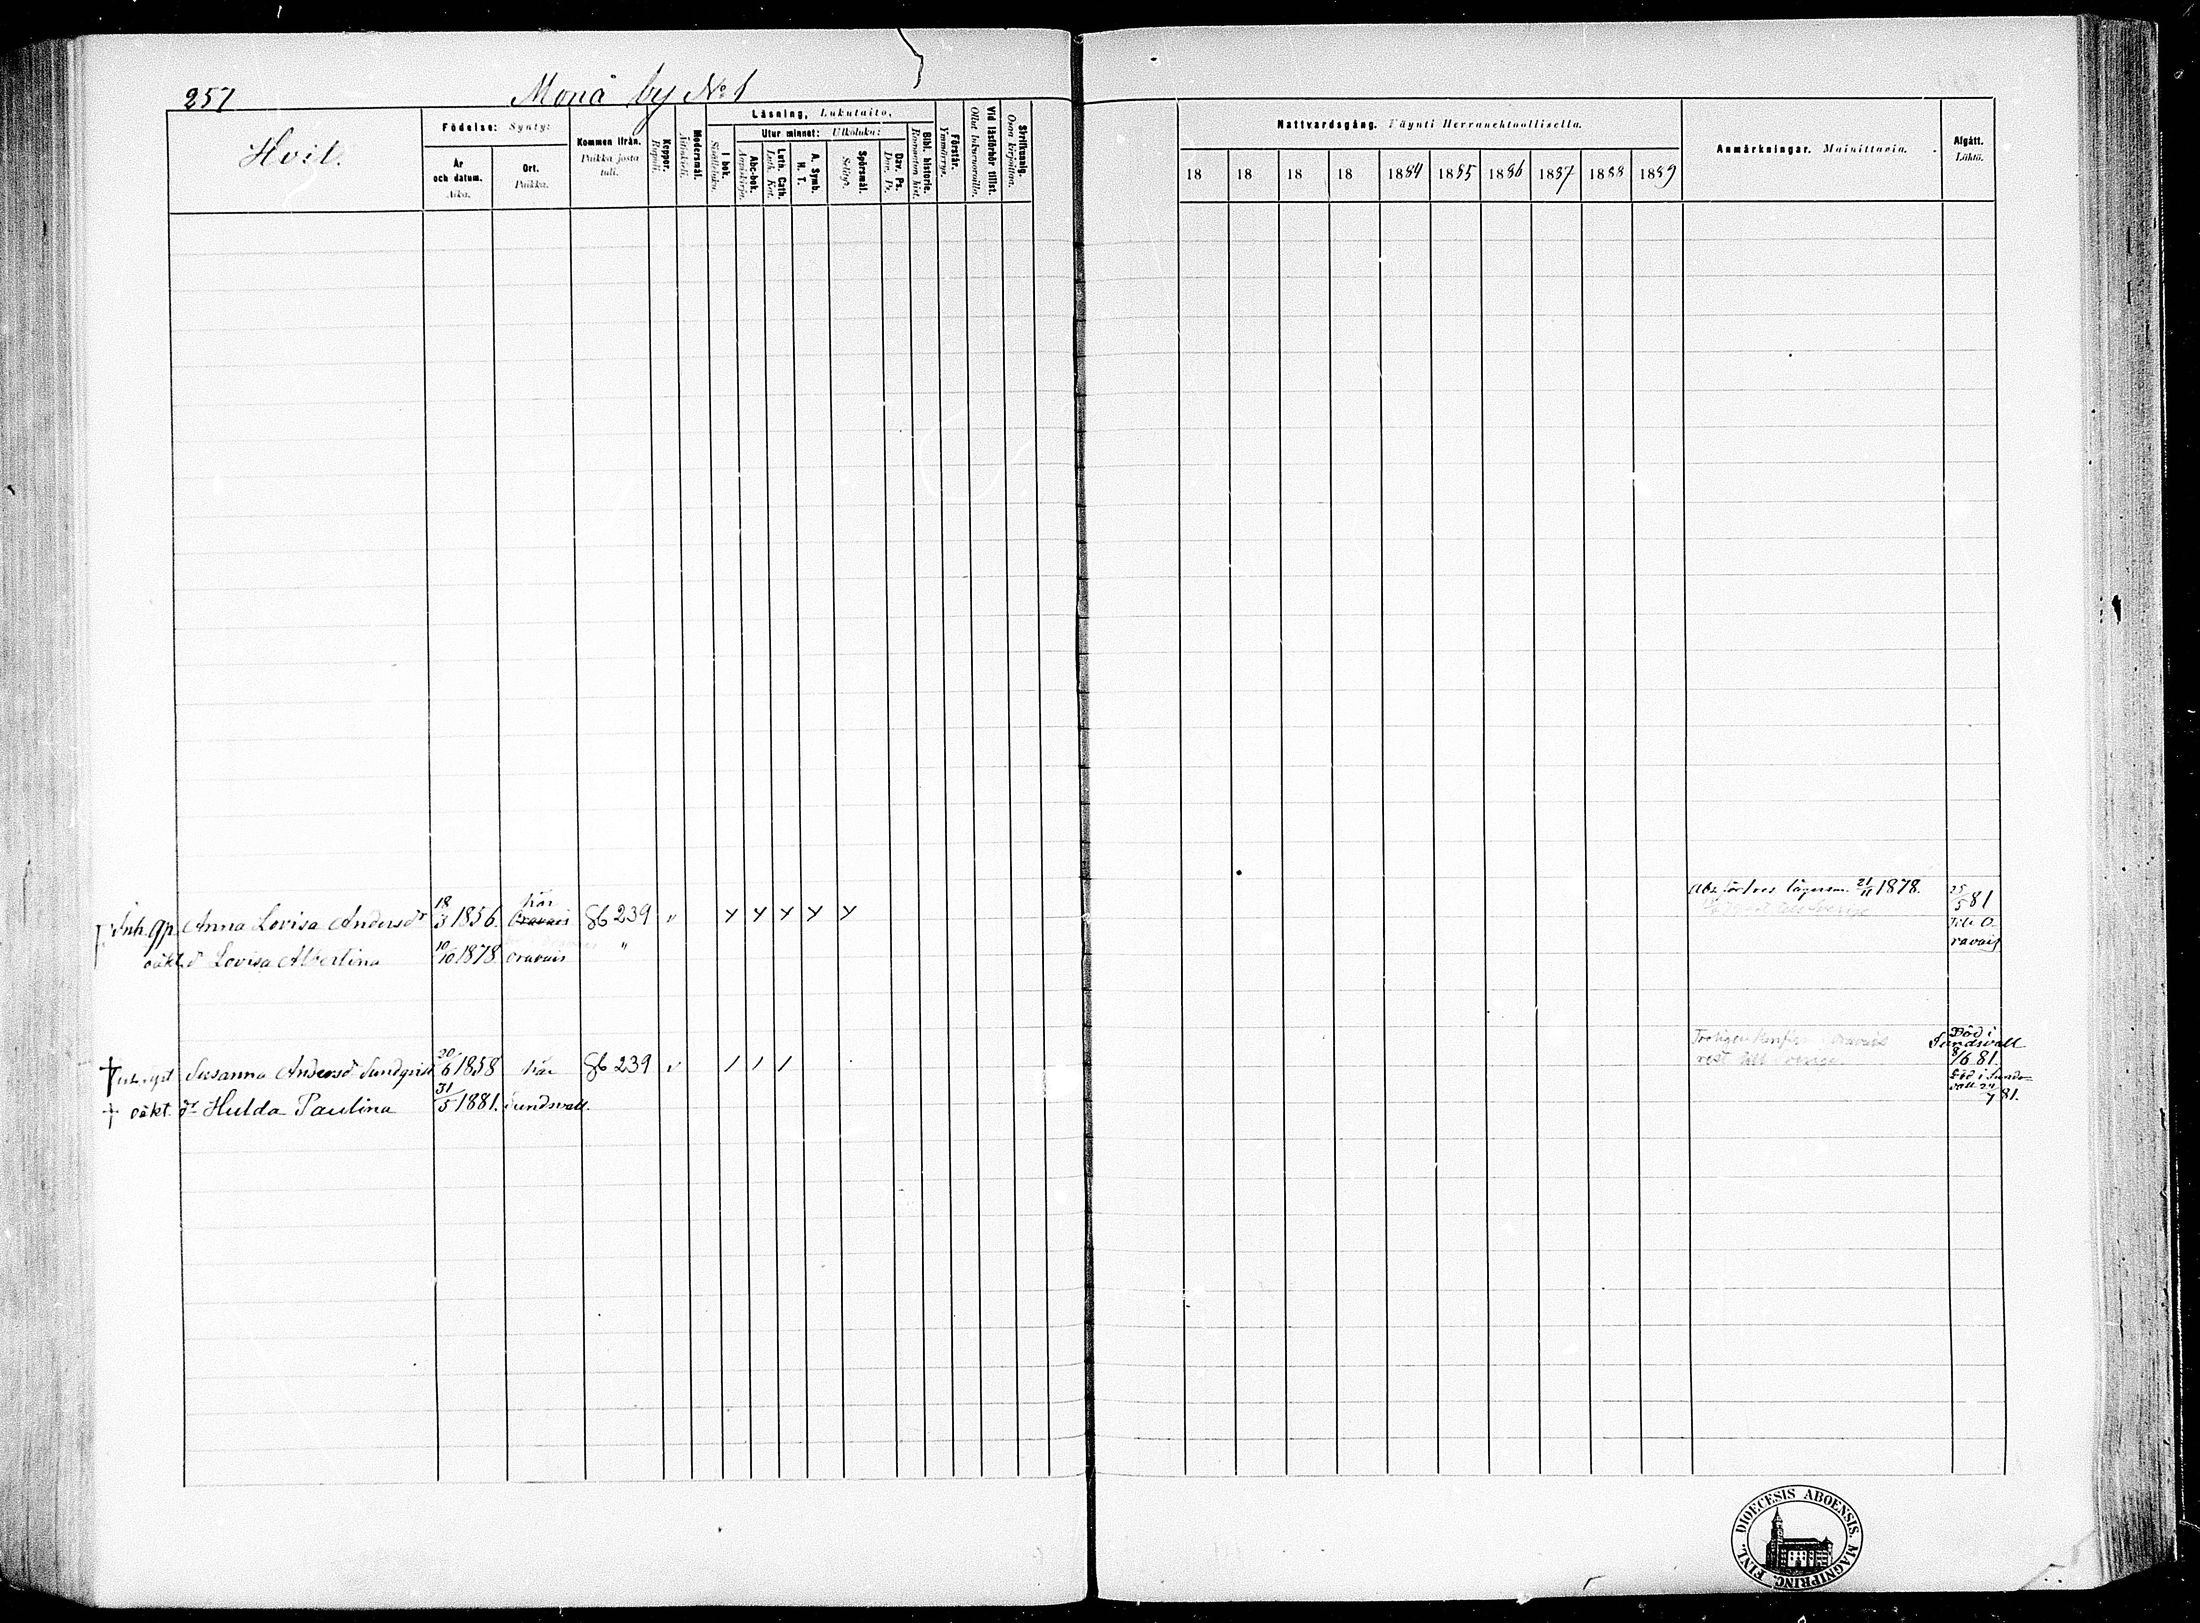 257
Monå by No 1
Hvit.
Födelse: Synty:
År och datum. Aika.
Ort. Paikka.
Kommen ifrån. Paikka josta tuli.
Koppor. Rupuli.
Modersmål. Äidinkieli.
Läsning, Lukutaito,
I bok. Sisältäluku.
Utur minnet: Ulkoluku:
Abc-bok. Aapiskirja.
Luth. Cath. Luth. Kat.
A. Symb. H. T.
Spörsmål. Selitys.
Dav. Ps. Dav. Ps.
Bibl. historie. Raamatun hist.
Förstår. Ymmärrys.
Vid läsförhör tillst. Ollut lukuvuoroilla.
Skrifkunnig. Osaa kirjoittaa.
Nattvardsgång. Käynti Herranehtoollisella.
18 18 18 18 1884 1885 1886 1887 1888 1889
Anmärkningar. Mainittavia.
Afgått. Lähtö.
Inh. Anna Lovisa Andersdr 18/3 1856. här Oravais 86 239 " 21/11 1878. 25/5 81
Till O-
ravais
oäkt. d Lovisa Albertina 10/10 1878 Oravais "
Susanna Andersdr Sundqvist 20/6 1858 här 86 239 " Död i
Sundsvall
8/6 81.
† oäkt. dr Hulda Paulina 31/5 1881. Sundsvall. Död i Sunds-
vall 24/7 81.
DIOECESIS ABOENSIS. MAGNI PRINC. FINL.